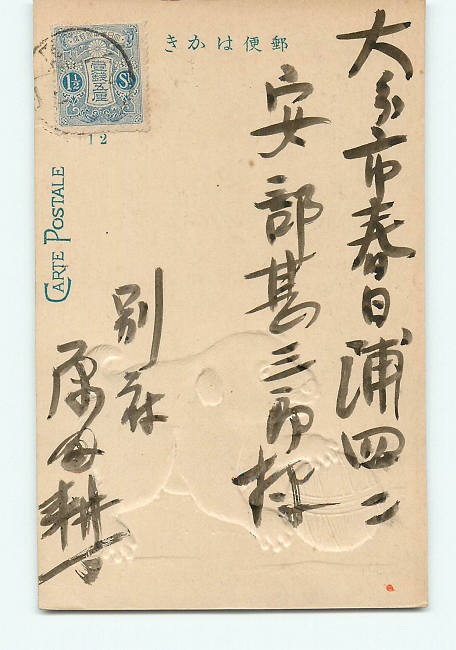 郵便はかき
大分市春日浦四二
安部甚三郎様
別府
原田耕
CARTE POSTALE
12
壹錢五厘
1½ Sn